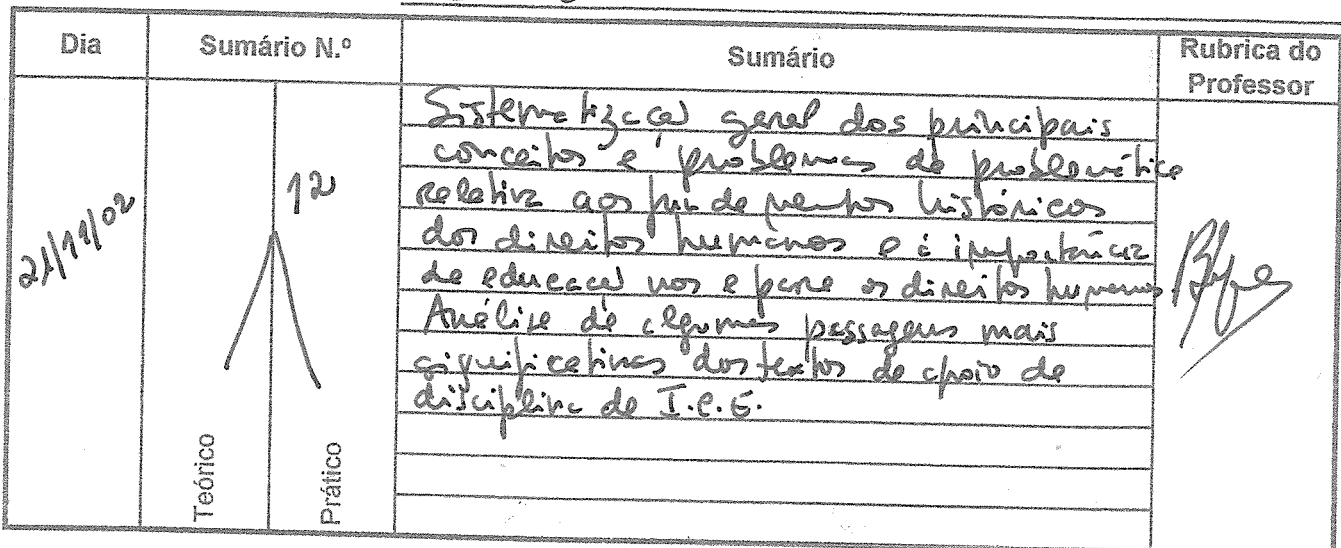 Dia Sumário N.º Sumário Rubrica do Professor
21/11/02
12
Sistematização geral dos principais
conceitos e problemas da problemática
relativa aos fundamentos históricos
dos direitos humanos e à importância
da educação nos e para os direitos humanos.
Análise de algumas passagens mais
significativas dos textos de apoio da
disciplina de I.C.E.
Teórico
Prático